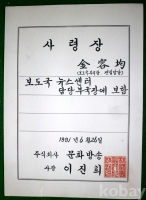 사령장
金容均
보도국 뉴스센터
담당부국장에 보함
1981년 6월 26일
주식회사 문화방송
사장 이진희
kobay